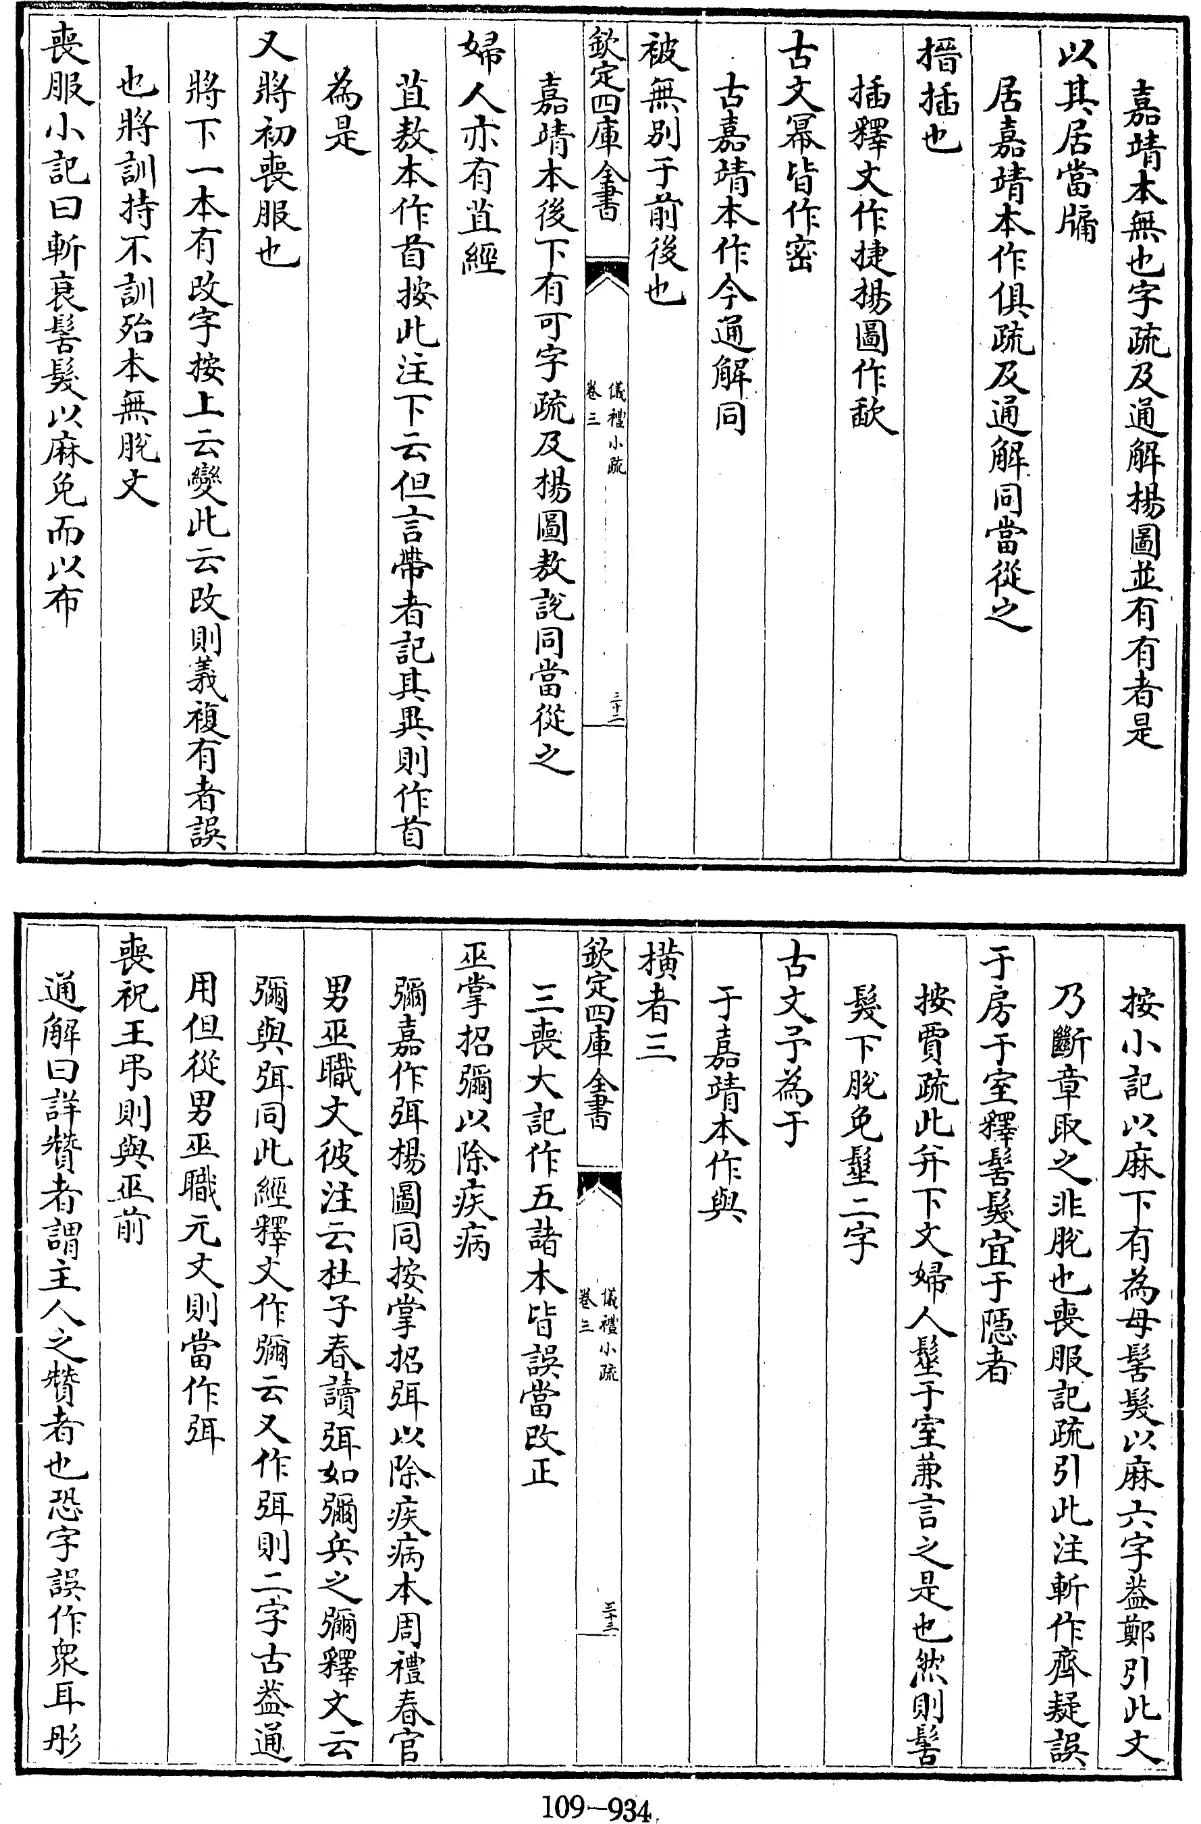 嘉靖本無也字疏及通解楊圖並有有者是
以其居當牖
居嘉靖本作俱疏及通解同當從之
搢插也
插釋文作捷楊圖作歃
古文冪皆作密
古嘉靖本作今通解同
被無别于前後也
欽定四庫全書
儀禮小疏
卷三
三十二
嘉靖本後下有可字疏及楊圖敖説同當從之
婦人亦有苴絰
苴敖本作首按此注下云但言帶者記其異則作首
為是
又將初喪服也
將下一本有改字按上云變此云改則義複有者誤
也將訓持不訓殆本無脱文
喪服小記曰斬衰髻髮以麻免而以布
按小記以麻下有為母髻髮以麻六字葢鄭引此文
乃斷章取之非脱也喪服記疏引此注斬作齊疑誤
于房于室釋髻髮宜于隱者
按賈疏此并下文婦人髽于室兼言之是也然則髻
髮下脱免髽二字
古文予為于
于嘉靖本作與
横者三
欽定四庫全書
儀禮小疏
卷三
三十三
三喪大記作五諸本皆誤當改正
巫掌招彌以除疾病
彌嘉作弭楊圖同按掌招弭以除疾病本周禮春官
男巫職文彼注云杜子春讀弭如彌兵之彌釋文云
彌與弭同此經釋文作彌云又作弭則二字古葢通
用但從男巫職元文則當作弭
喪祝王弔則與巫前
通解曰詳贊者謂主人之贊者也恐字誤作衆耳彤
109-934